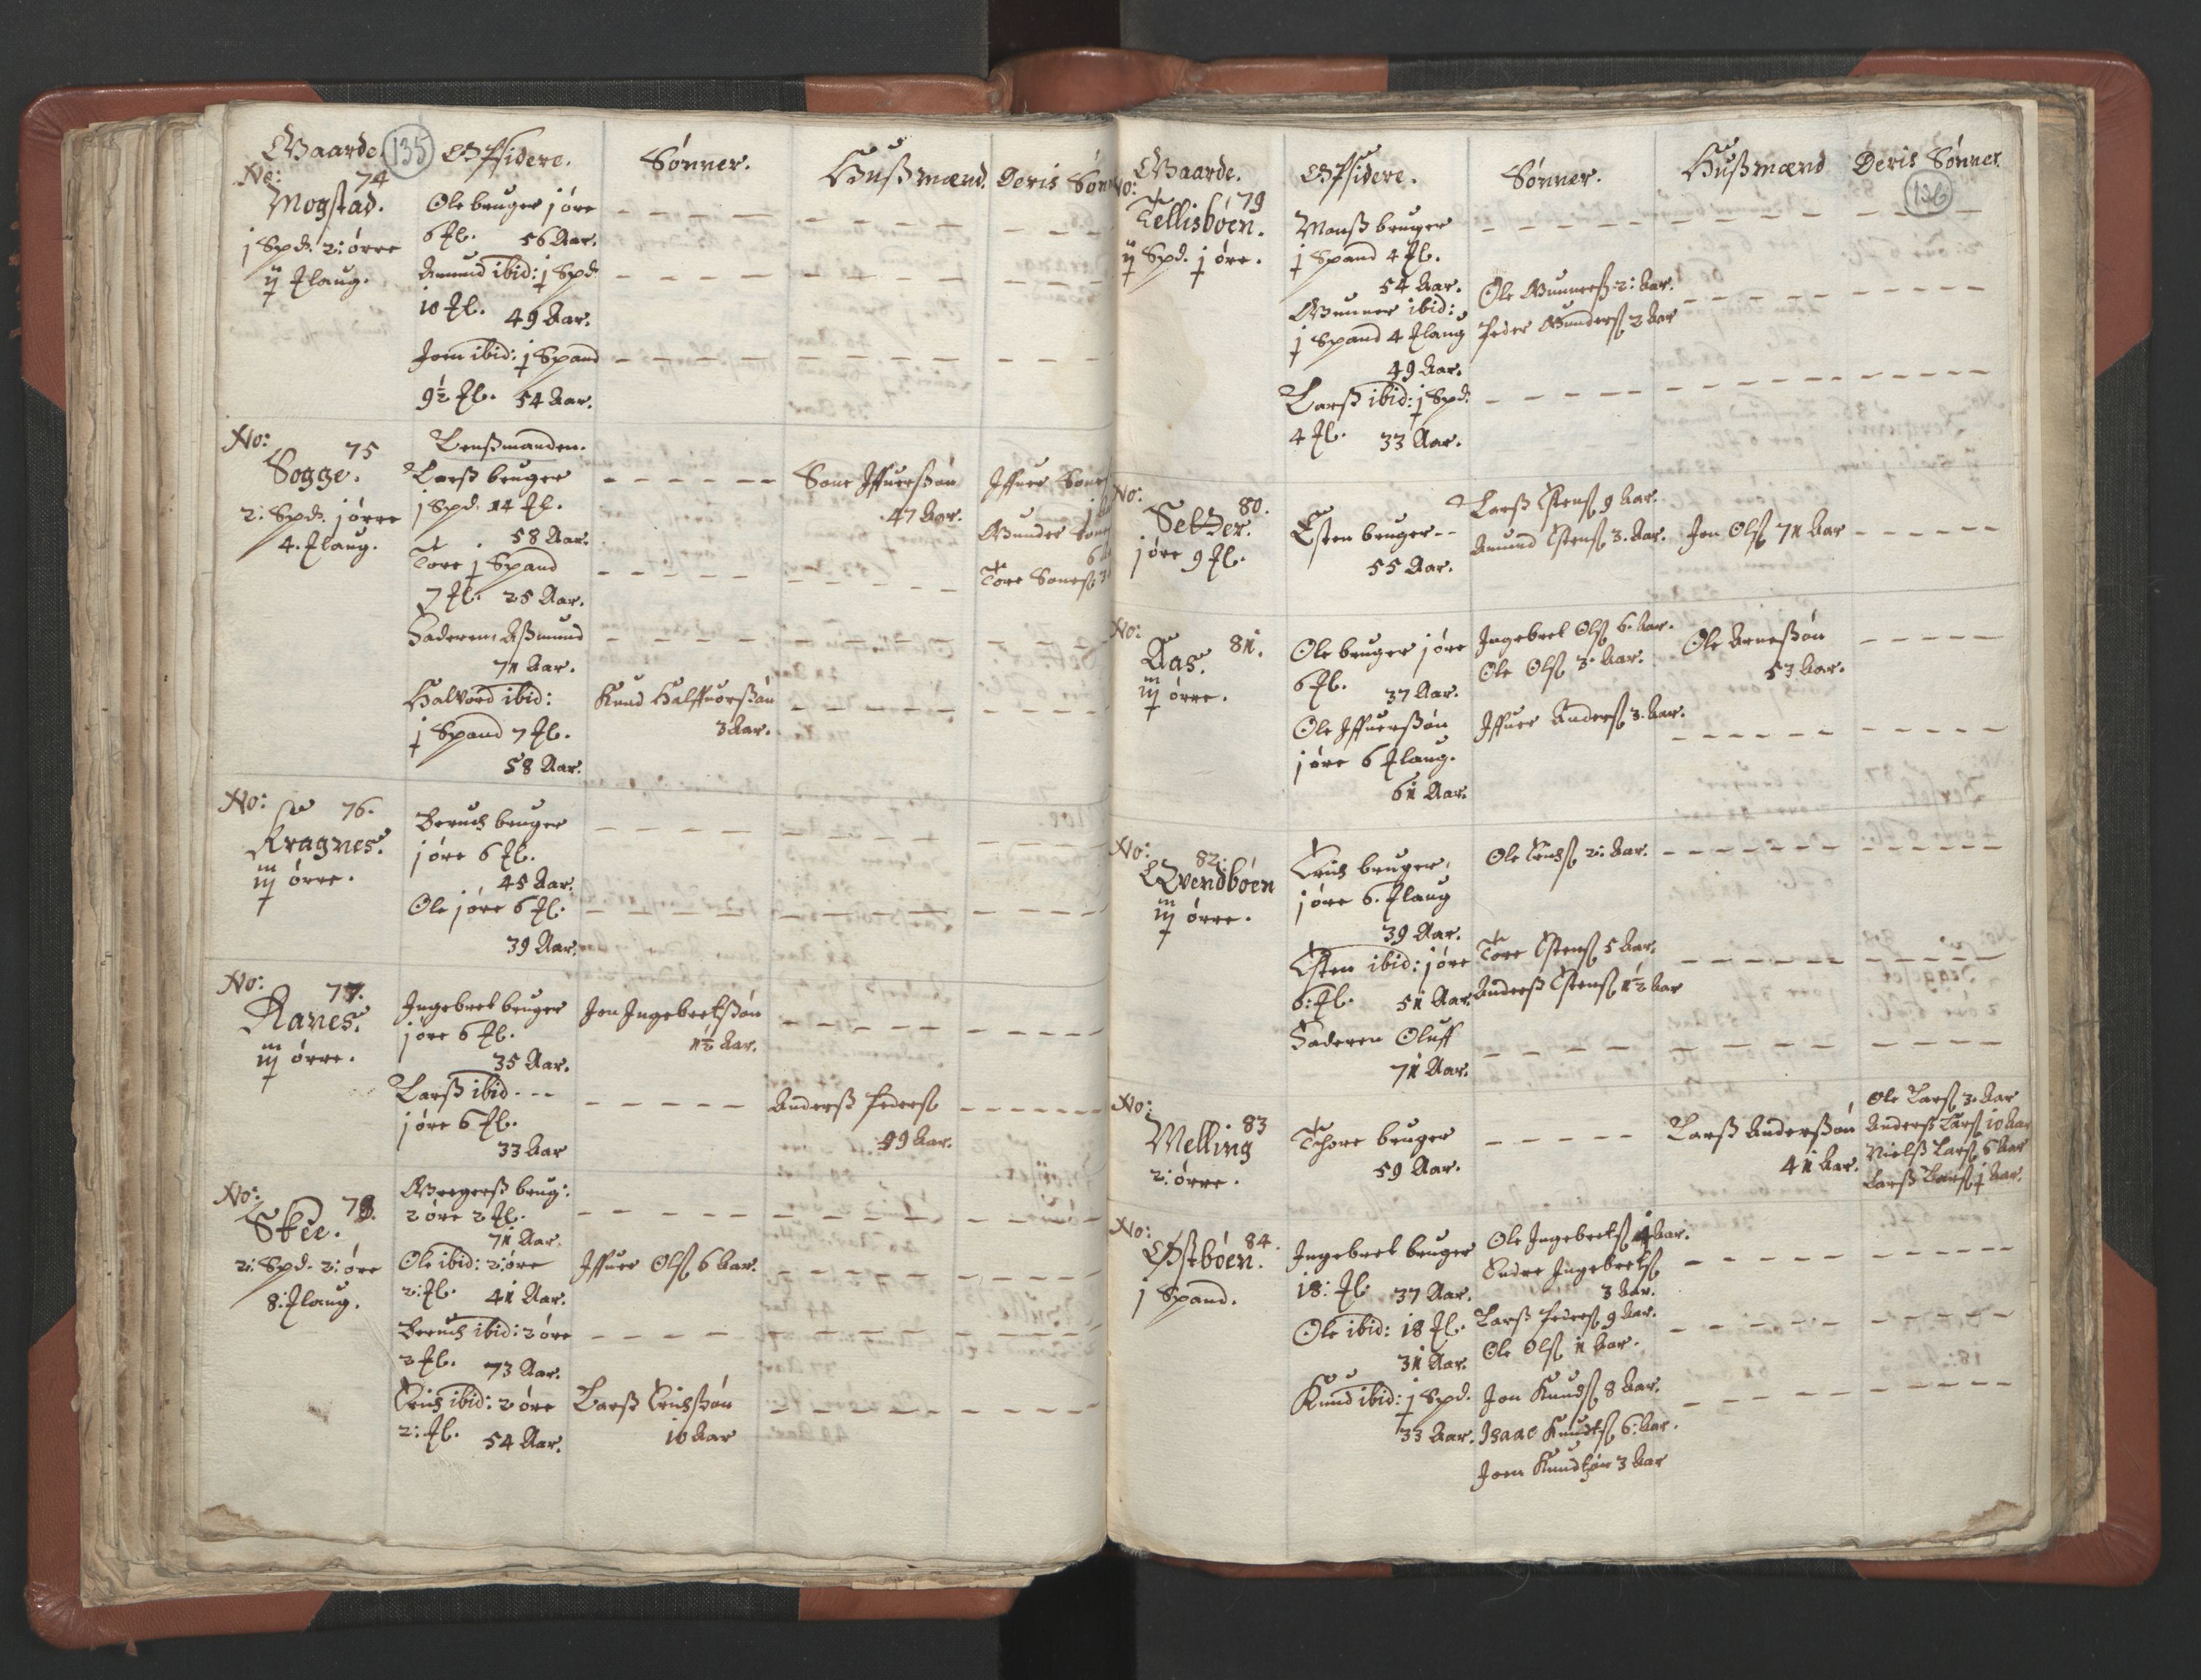 Gaarde. 135 Opsidere. Sønner. Hußmænd. Deris Sønn
No: 74
Mogstad.
j Spd. 2: ørre
ij Flaug.
Ole bruger j øre
6 Fl. 56 Aar.
Amund ibid: j Spd.
10 Fl. 49 Aar.
Joen ibid: j Spand
9½ Fl. 54 Aar.
No: 75
Sogge.
2: Spd. j ørre
4. Flaug.
Lenßmanden.
Larß bruger
j Spd. 14 Fl.
58 Aar.
Tore j Spand
7 Fl. 25 Aar.
Faderen Aßmund
71 Aar.
Halvord ibid:
j Spand 7 Fl.
58 Aar.
Knud Halffuorßøn
3 Aar.
Sone Iffuerßøn
47 Aar.
Iffuer Sone
Gunder Sone
6
Tore Soneß 3
No: 76.
Kragnes.
iij ørre.
Beruch bruger
j øre 6 Fl.
45 Aar.
Ole j øre 6 Fl.
39 Aar.
No: 77.
Ranes.
iij ørre.
Ingebret bruger
j øre 6 Fl.
35 Aar.
Larß ibid
j øre 6 Fl.
33 Aar
Jon Ingebretßøn
1½ Aar.
Anderß Pederß
49 Aar.
No: 78.
Skee.
2: Spd. 2: øre
8: Flaug.
Gregerß brug:
2 øre 2 Fl.
71 Aar.
Ole ibid: 2: øre
2: Fl. 41 Aar.
Beruch ibid: 2 øre
2 Fl. 73 Aar.
Erich ibid: 2 øre
2: Fl. 54 Aar.
Iffuer Olß 6 Aar.
Larß Erichßøn
10 Aar
Gaarde. Opsidere. Sønner. Hußmænd Deris Sønner
136
No: 79
Tellisbøen.
ij Spd. j øre.
Monß bruger
j Spand 4 Fl.
54 Aar.
Gunner ibid:
j Spand 4 Flaug
49 Aar.
Larß ibid: j Spd:
4 Fl. 33 Aar.
Ole Gunnerß 2: Aar.
Peder Gunderß 2 Aar
No: 80.
Setter.
j øre 9 Fl.
Esten bruger
55 Aar.
Larß Estenß 9 Aar.
Amund Estenß 3. Aar.
Jon Olß 71 Aar
No: 81.
Aas.
iij ørre.
Ole bruger j øre
6 Fl. 37 Aar.
Ole Iffuerßøn
j øre 6 Flaug.
61 Aar.
Ingebret Olß 6. Aar.
Ole Olß 3. Aar.
Iffuer Anderß 3. Aar.
Ole Arneßøn
53 Aar.
No: 82:
Qvendbøen
iij ørre.
Erich bruger
j øre 6. Flaug
39 Aar.
Esten ibid: j øre
6: Fl. 51 Aar
Faderen Oluff
71 Aar.
Ole Erichß 2: Aar.
Tore Estenß 5 Aar.
Anderß Estenß 1½ Aar
No: 83
Melling
2: ørre.
Thore bruger
59 Aar.
Larß Anderßøn
41 Aar.
Ole Larß 3. Aar
Anderß Larß 10 Aar
Nielß Larß 6 Aar
Larß Larß j Aar.
No: 84.
Østbøen.
j Spand.
Ingebret bruger
18: Fl. 37 Aar.
Ole ibid: 18 Fl.
31 Aar.
Knud ibid: j Spd.
33 Aar.
Ole Ingebretß Aar.
Endre Ingebretß
3 Aar.
Larß Pederß 9 Aar.
Ole Olß 1 Aar.
Jon Knudß 8 Aar.
Isaac Knudtß 6: Aar.
Joen Knudtzøn 3 Aar